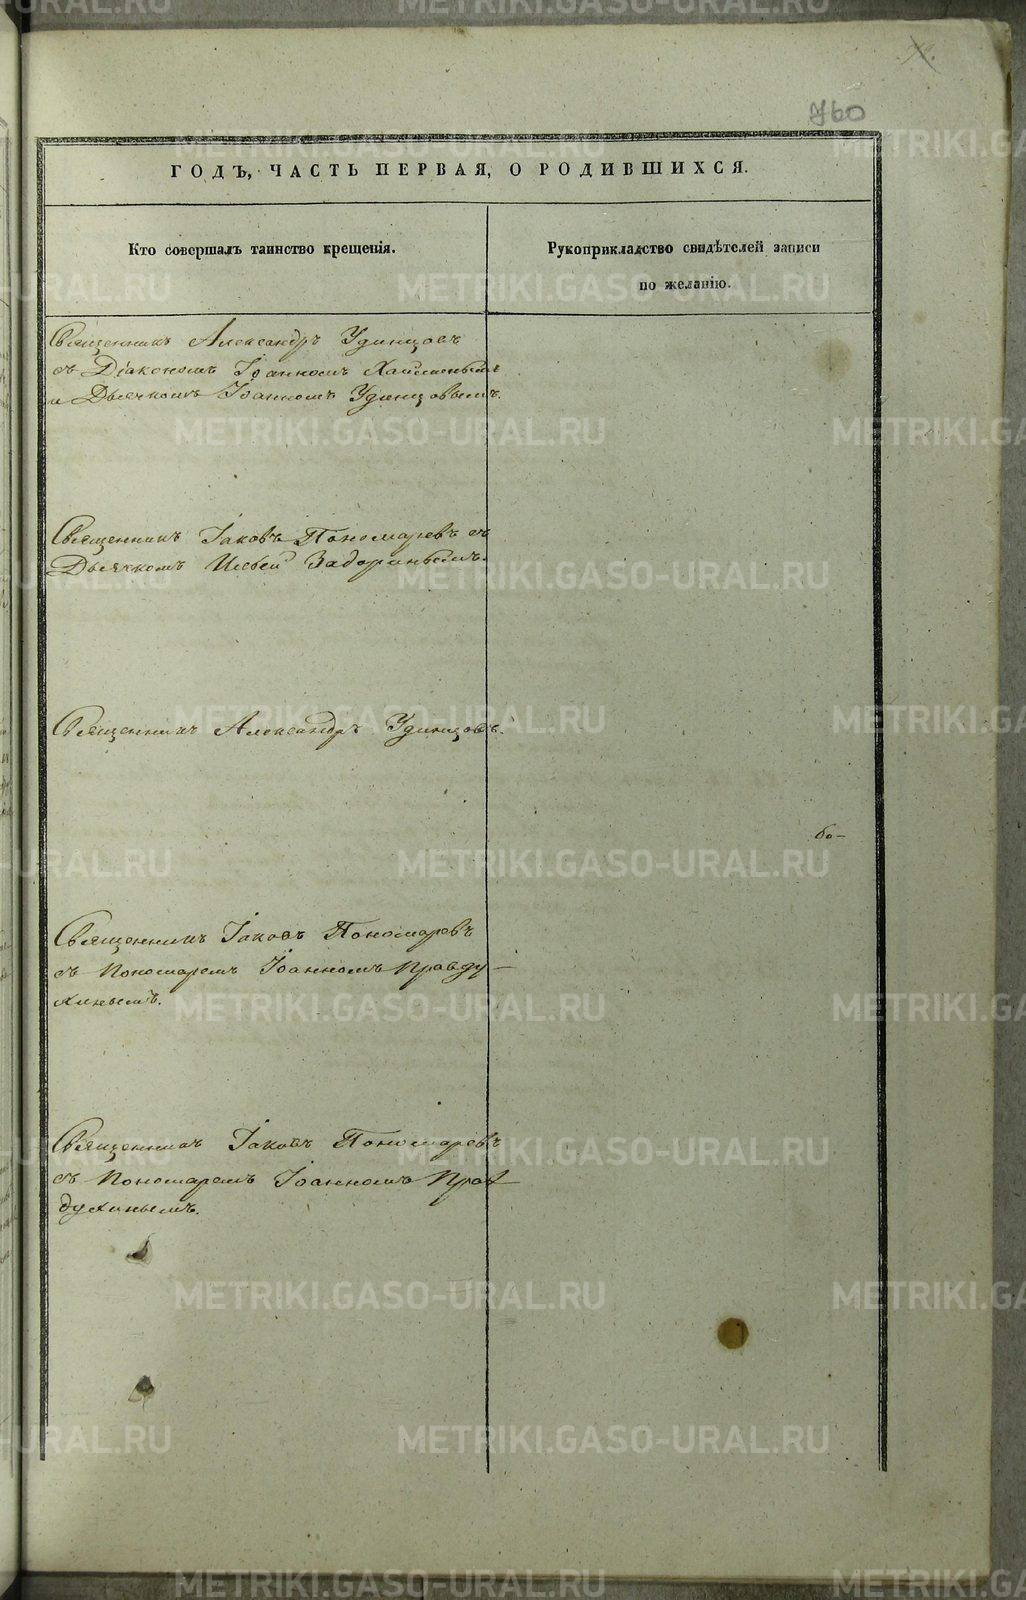 760
ГОДЪ, ЧАСТЬ ПЕРВАЯ, О РОДИВШИХСЯ.
Кто совершалъ таинство крещенія.
Рукоприкладство свидѣтелей записи
по желанію.
Священникъ Александръ Удинцовъ
съ Діакономъ Іоанномъ
и Дьячкомъ Іоанномъ Удинцовымъ.
Священникъ Іаковъ Пономаревъ съ
Дьячкомъ Ильей Задоринымъ.
Священникъ Александръ Удинцовъ.
Священникъ Іаковъ Пономаревъ
съ Пономаремъ Іоанномъ Правду-
хинымъ.
Священникъ Іаковъ Пономаревъ
съ Пономаремъ Іоанномъ Прав
духинымъ.
METRIKI.GASO-URAL.RU